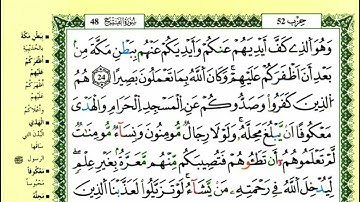 حِزْب 52
سُورَةُ الفَتْحِ 48
وَهُوَ الَّذِي كَفَّ أَيْدِيَهُمْ عَنكُمْ وَأَيْدِيَكُمْ عَنْهُم بِبَطْنِ مَكَّةَ مِنۢ
بَعْدِ أَنْ أَظْفَرَكُمْ عَلَيْهِمْ ۚ وَكَانَ اللَّهُ بِمَا تَعْمَلُونَ بَصِيرًا 24
هُمُ الَّذِينَ كَفَرُوا وَصَدُّوكُمْ عَنِ الْمَسْجِدِ الْحَرَامِ وَالْهَدْيَ
مَعْكُوفًا أَن يَبْلُغَ مَحِلَّهُ ۚ وَلَوْلَا رِجَالٌ مُّؤْمِنُونَ وَنِسَاءٌ مُّؤْمِنَاتٌ
لَّمْ تَعْلَمُوهُمْ أَن تَطَـُٔوهُمْ فَتُصِيبَكُم مِّنْهُم مَّعَرَّةٌۢ بِغَيْرِ عِلْمٍ ۖ
لِّيُدْخِلَ اللَّهُ فِي رَحْمَتِهِ مَن يَشَاءُ ۚ لَوْ تَزَيَّلُوا لَعَذَّبْنَا الَّذِينَ
بِبَطْنِ مَكَّةَ
بِالحُدَيْبِيَةِ
أَظْفَرَكُمْ
عَلَيْهِمْ
الْهَدْيَ
البُدْنَ التي
سَاقَهَا
الرسول
مَعْكُوفًا
مَحْبُوسًا
مَحِلَّهُ